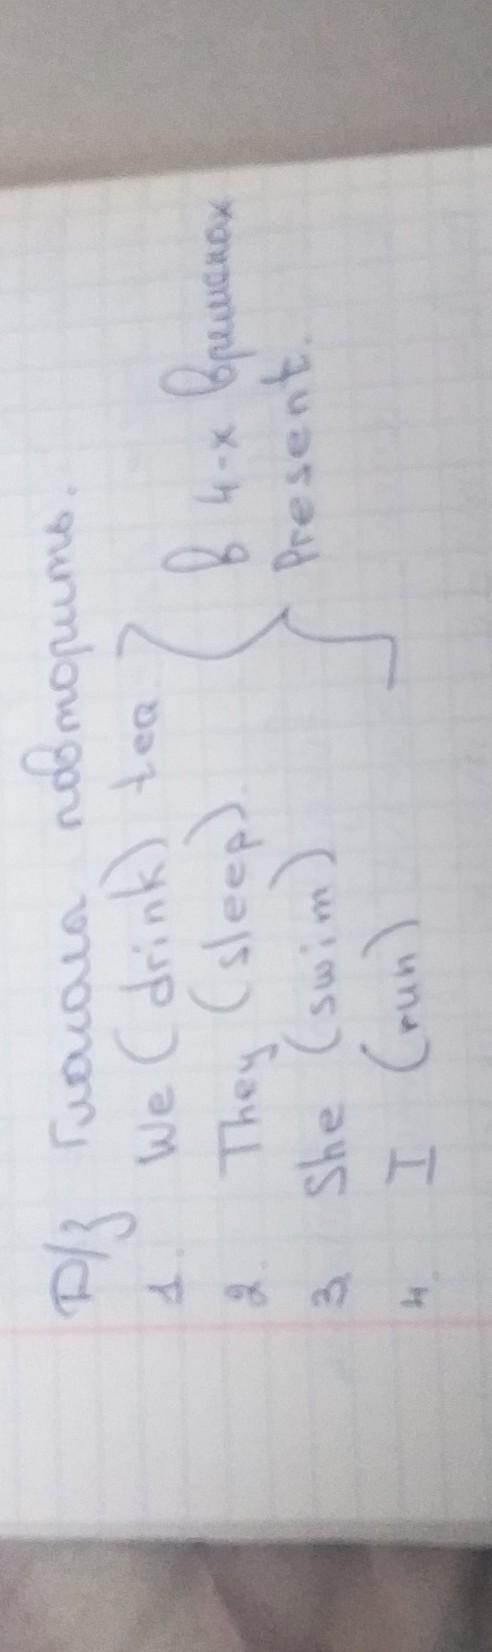 Д/з Глагола повторить.
1. We (drink) tea
2. They (sleep).
3. She (swim)
4. I (run)
в 4-х временах
Present.